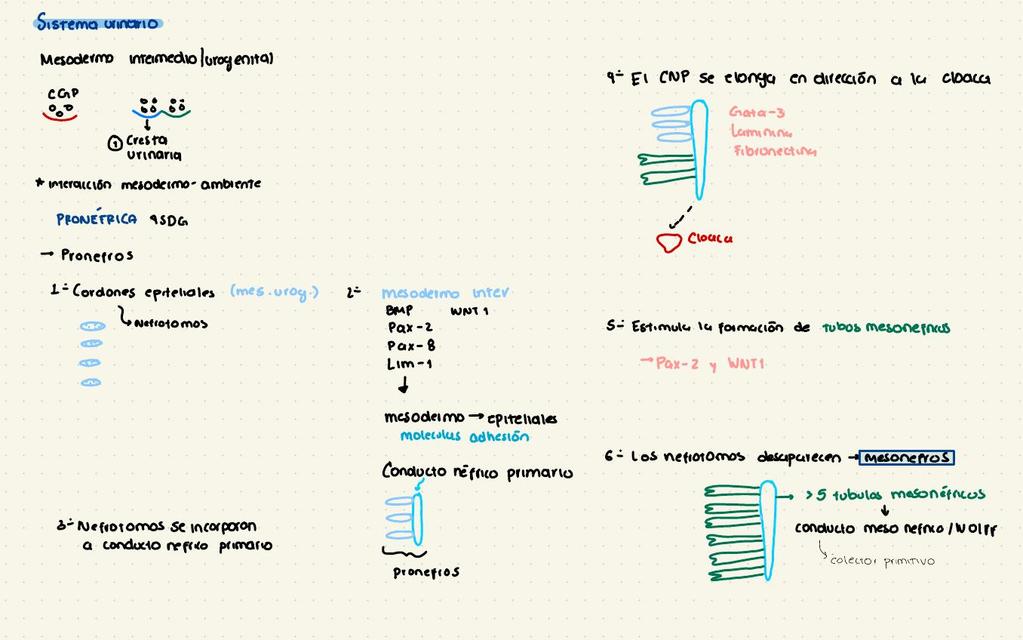 Sistema urinario
Mesodermo intermedio/urogenital
CGP
① Cresta
urinaria
* interacción mesodermo-ambiente
PRONÉFRICA 4SDG
→ Pronefros
1- Cordones epiteliales (mes.urog.)
Nefrotomos
2-
mesodermo inter
BMP WNT1
Pax-2
Pax-8
Lim-1
mesodermo → epiteliales
moleculas adhesión
Conducto néfrico primario
pronefros
3- Nefrotomos se incorporan
a conducto nefrico primario
4- El CNP se elonga en dirección a la cloaca
Gata-3
Laminina
Fibronectina
Cloaca
5- Estimula la formación de tubos mesonefricos
→ Pax-2 y WNT1
6- Los nefrotomos desaparecen → mesonefros
>5 tubulos mesonéfricos
conducto mesonefrico/Wolff
colector primitivo